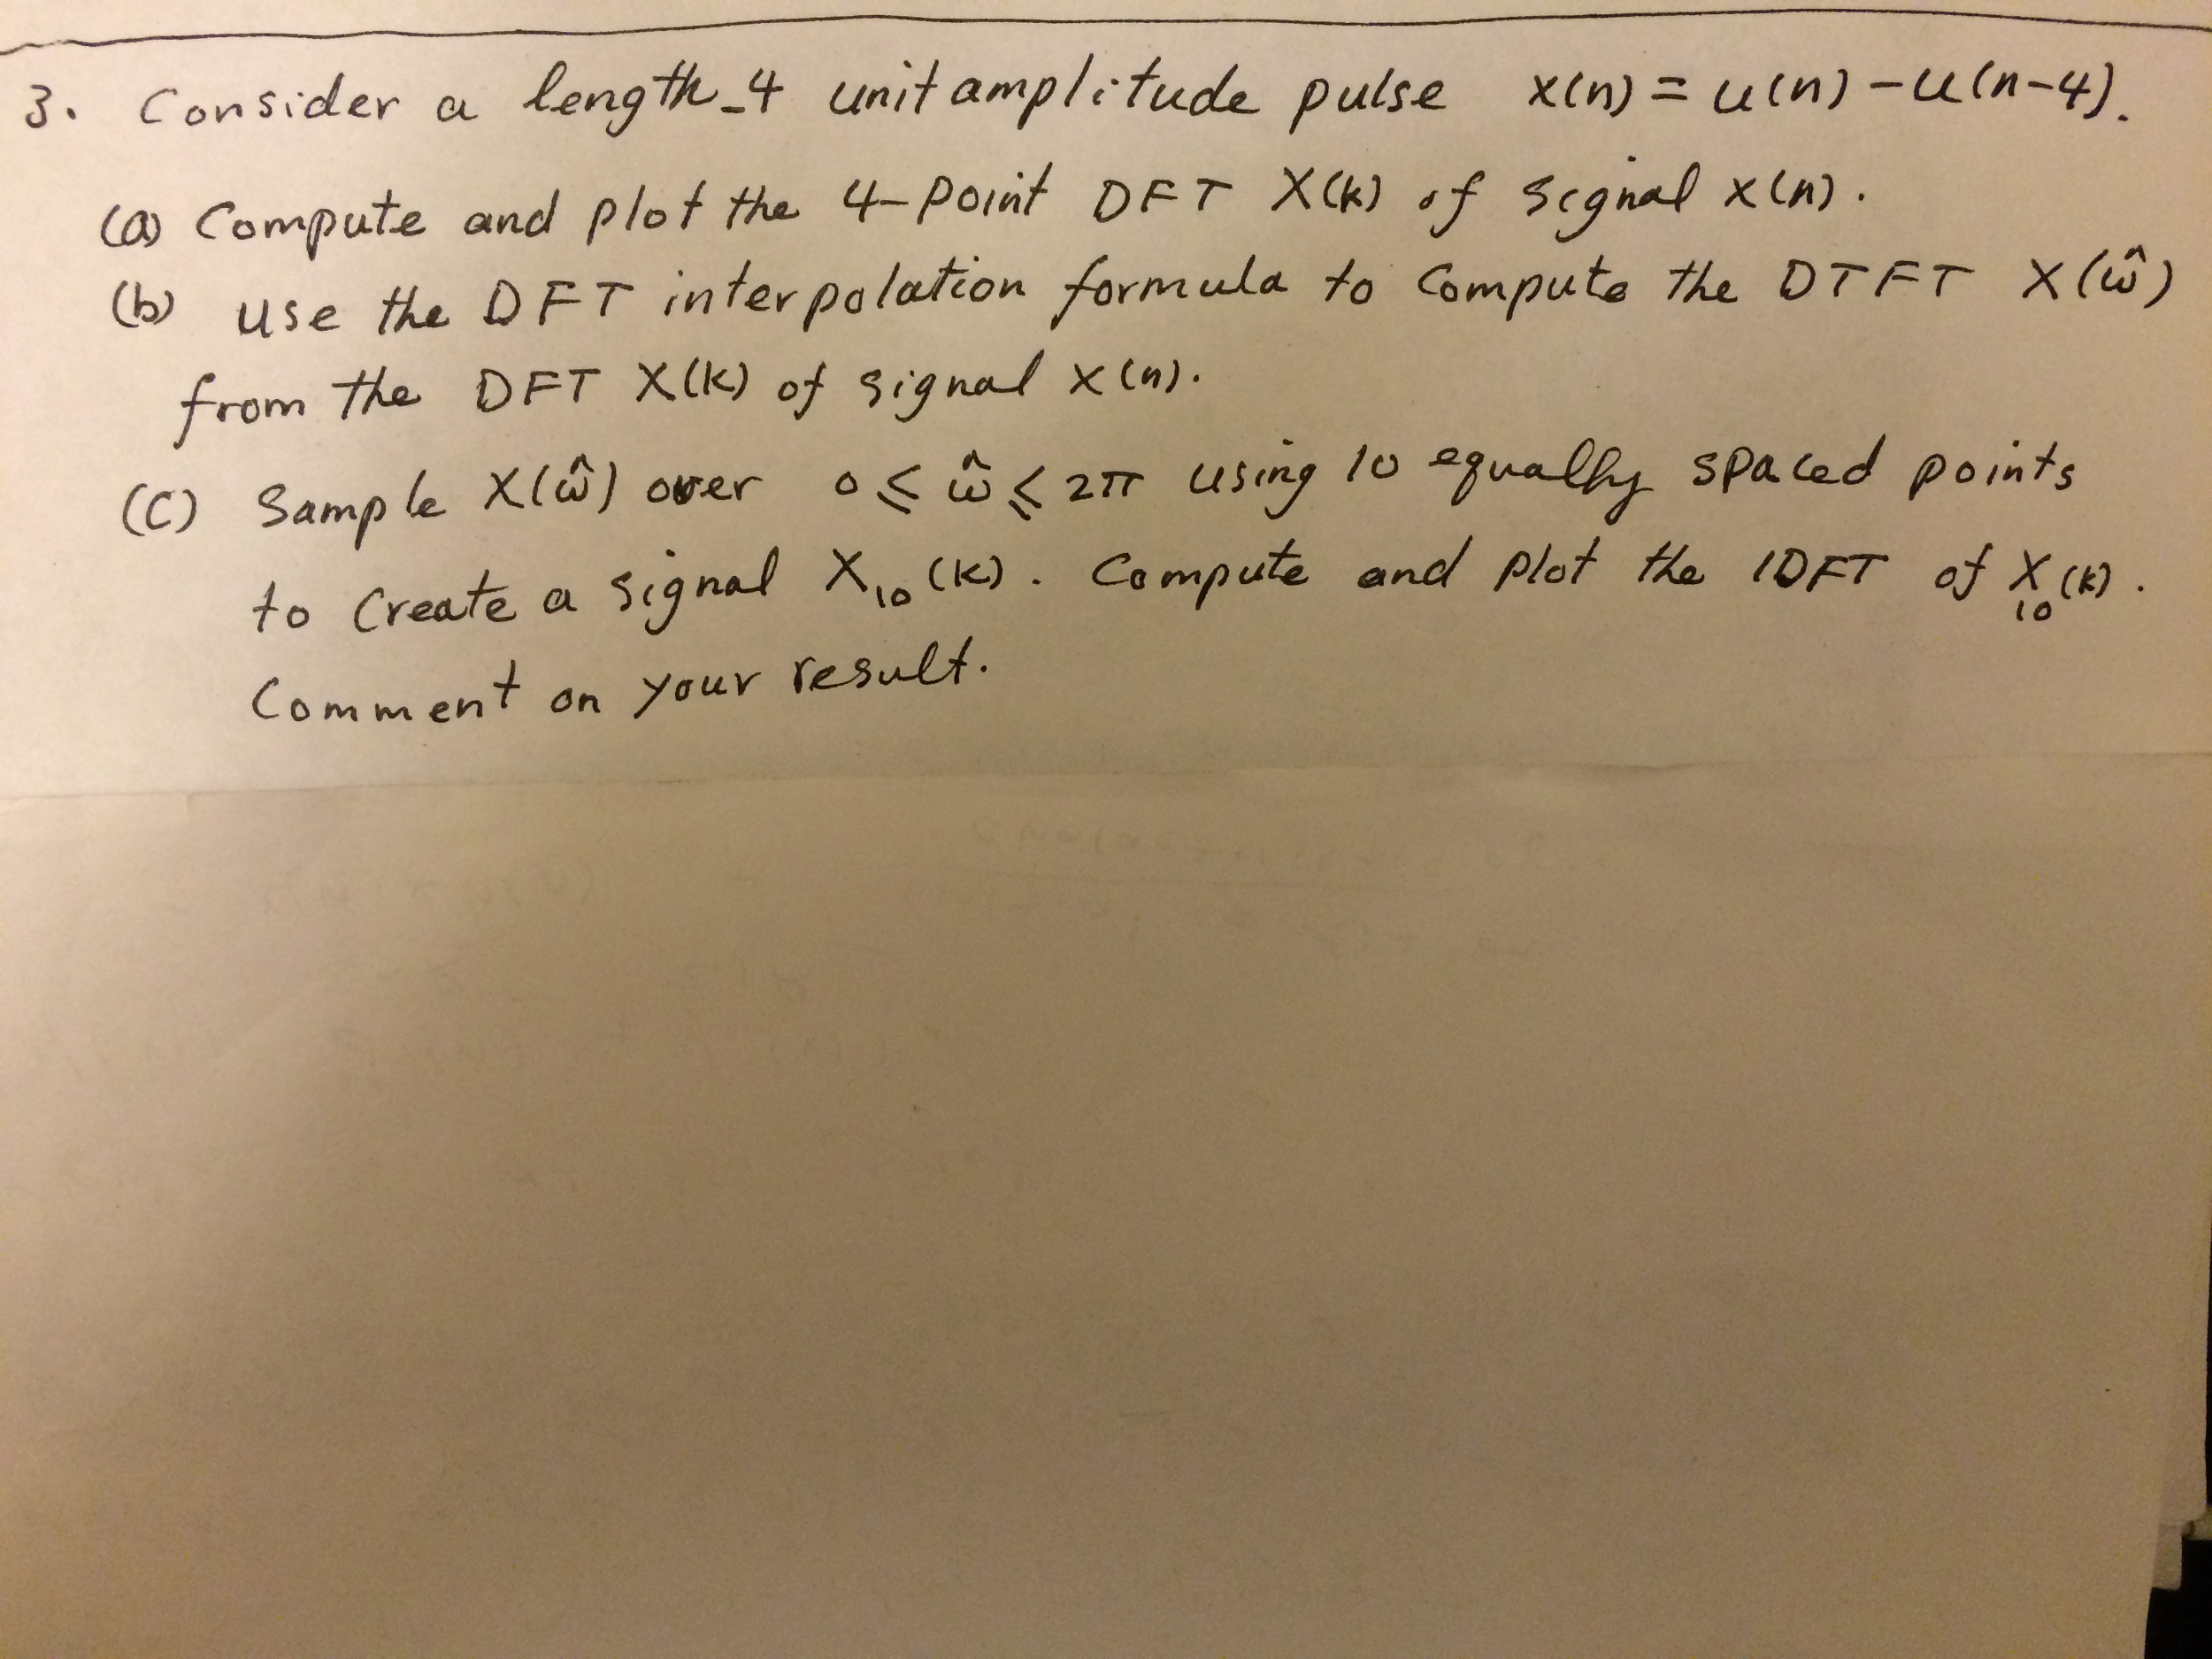 3. Consider a length_4 unit amplitude pulse x(n) = u(n) - u(n-4).
(a) Compute and plot the 4-Point DFT X(k) of signal x(n).
(b) Use the DFT interpolation formula to compute the DTFT X(ω̂)
from the DFT X(k) of signal x(n).
(C) Sample X(ω̂) over 0 ≤ ω̂ ≤ 2π using 10 equally spaced points
to create a signal X₁₀(k). Compute and plot the IDFT of X₁₀(k).
Comment on your result.